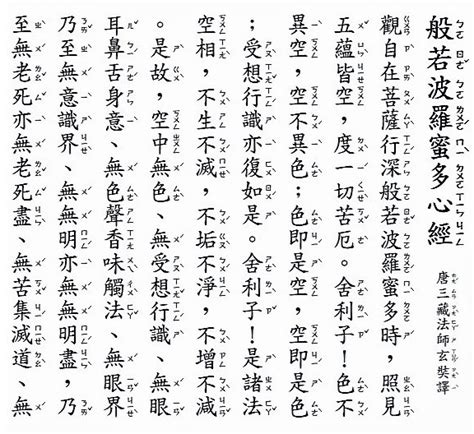 般若波羅蜜多心經
唐三藏法師玄奘譯
觀自在菩薩行深般若波羅蜜多時，照見
五蘊皆空，度一切苦厄。舍利子！色不
異空，空不異色；色即是空，空即是色
；受想行識亦復如是。舍利子！是諸法
空相，不生不滅，不垢不淨，不增不減
。是故，空中無色、無受想行識、無眼
耳鼻舌身意、無色聲香味觸法、無眼界
乃至無意識界、無無明亦無無明盡，乃
至無老死亦無老死盡、無苦集滅道、無